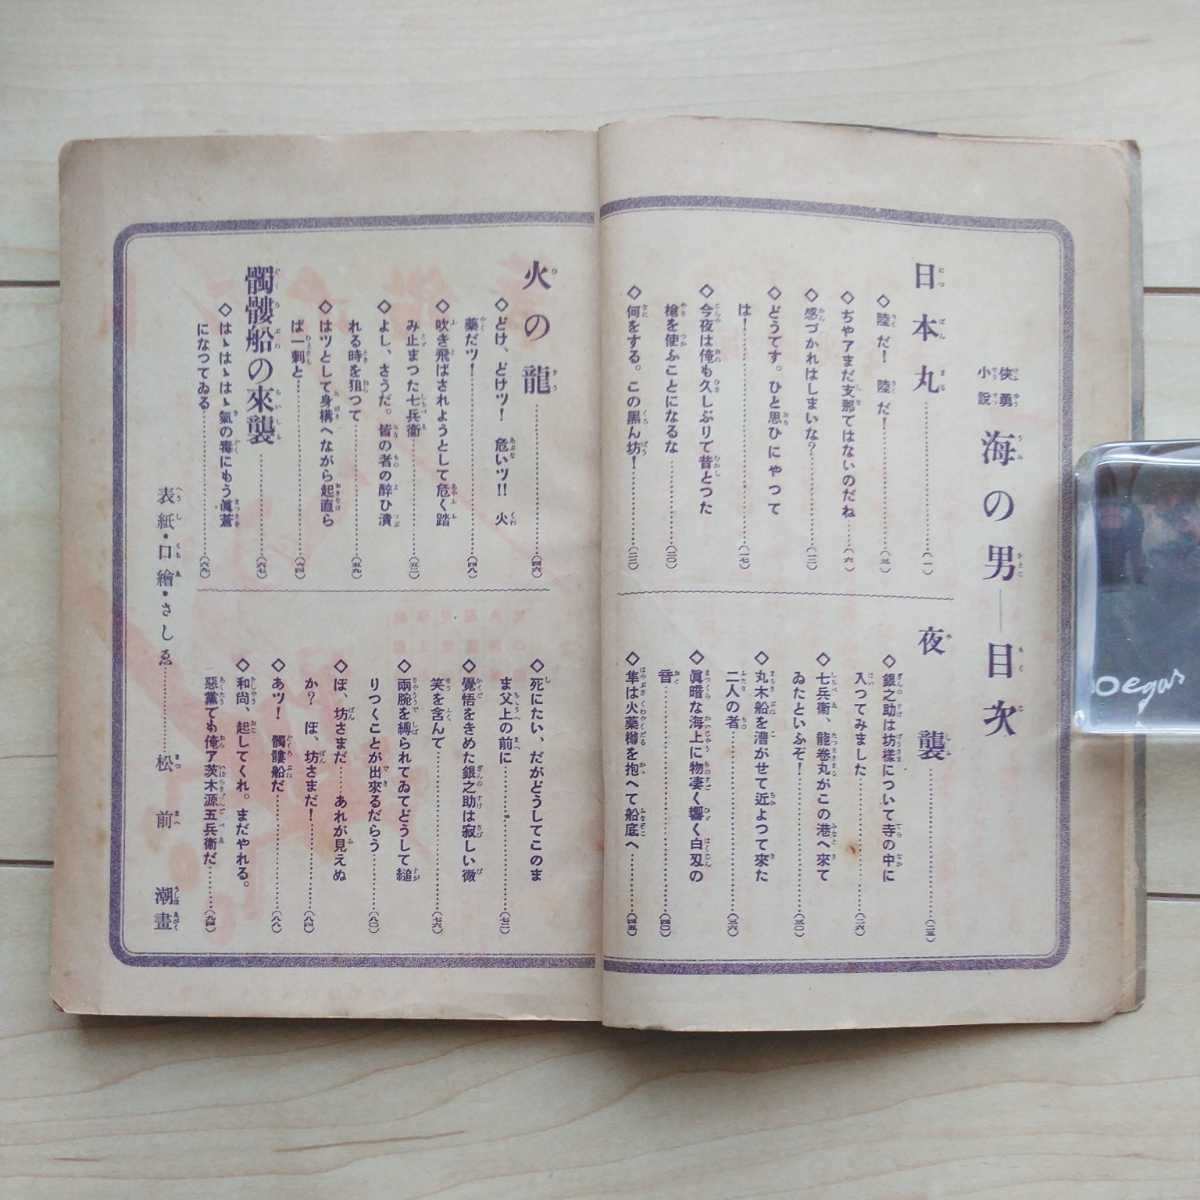 俠勇
小說
海の男―目次
日本丸……(一)
◇陸だ! 陸だ!……(三)
◇ぢやアまだ支那ではないのだね……(六)
◇感づかれはしまいな?……(一二)
◇どうです。ひと思ひにやつて
は!……(一七)
◇今夜は俺も久しぶりで昔とつた
槍を使ふことになるな……(二〇)
◇何をする。この黑ん坊!……(二二)
夜襲……(二五)
◇銀之助は坊樣について寺の中に
入つてみました……(二六)
◇七兵衞、龍卷丸がこの港へ來て
ゐたといふぞ!……(三〇)
◇丸木船を漕がせて近よつて來た
二人の者……(三六)
◇眞暗な海上に物凄く響く白刃の
音……(四〇)
◇隼は火藥樽を抱へて船底へ……(四五)
火の龍……(四六)
◇どけ、どけツ! 危いツ!! 火
藥だツ!……(四八)
◇吹き飛ばされようとして危く踏
み止まつた七兵衞……(五二)
◇よし、さうだ。皆の者の醉ひ潰
れる時を狙つて……(五九)
◇はツとして身構へながら起直ら
ば一刺と……(六四)
髑髏船の來襲……(六七)
◇はゝはゝはゝ氣の毒にもう眞蒼
になつてゐる……(六九)
◇死にたい、だがどうしてこのま
ま父上の前に……(七二)
◇覺悟をきめた銀之助は寂しい微
笑を含んで……(七六)
◇兩腕を縛られてゐてどうして縋
りつくことが出來るだらう……(八一)
◇ぼ、坊さまだ……あれが見えぬ
か? ぼ、坊さまだ!……(八四)
◇あツ! 髑髏船だ!……(八八)
◇和尚、起してくれ。まだやれる。
惡黨でも俺ア茨木源五兵衞だ……(九四)
表紙・口繪・さしゑ……松前潮畫
oegas